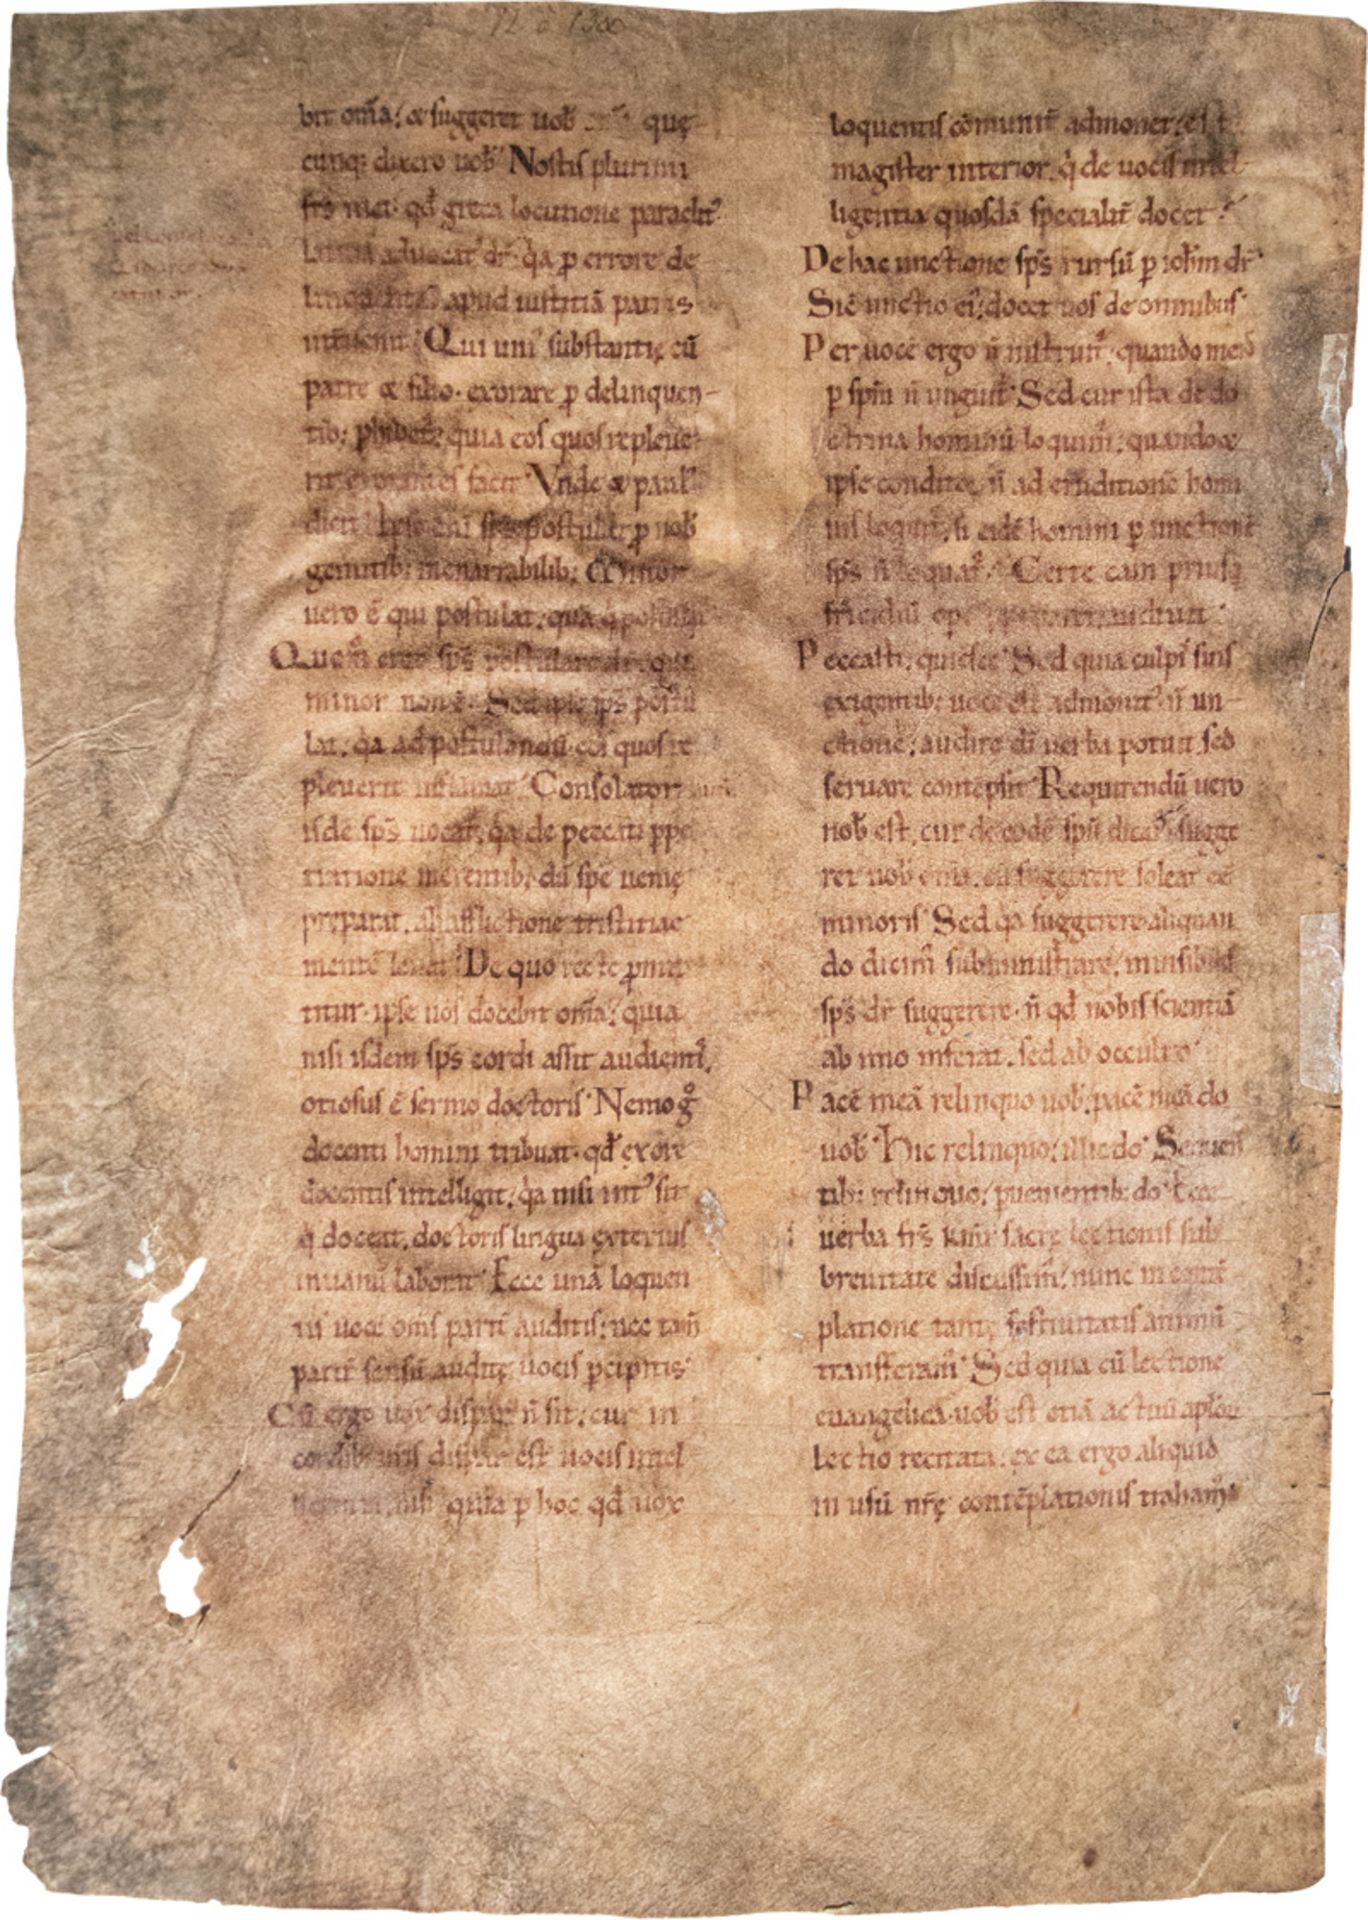 bit om̄a; & suggeret uob̄ quę
cunq; dixero uob̄ Nostis plurimi
frs̄ mei· qd̄ greca locutione paraclit᾽
latina aduocat᾽ dr̄· q̇a p errore de
apud iustitiā patris
Qui uni᾽ substantię cū
patre & filio· exorare p delinquen-
tib; phibet᾽; quia eos quos repleue
rit exorantes facit Vnde & paul᾽
dicit Ipse eni sp̄s postulat p nob̄
gemitib; inenarrabilib; Minor
uero ē qui postulat; quā q̇
Quom̊ ergo sp̄s postulare
minor non ē· Sed ipse sp̄s postu
lat· q̇a ad postulandū eos quos re
pleuerit inflāmat Consolator
isdē sp̄s uocat᾽, q̇a de peccati ppe
tratione merentib; dū spē uenię
preparat, ab afflictione tristitiae
mentē leuat De quo recte pmit
titur· ipse uos docebit om̄a; quia
nisi isdem sp̄s cordi assit audient̄,
otiosus ē sermo doctoris Nemo g̊
docenti homini tribuat· qd̄ ex ore
docentis intelligit, q̇a nisi int᾽ sit
q̇ doceat, doctoris lingua exterius
in uanū laborit Ecce unā loquen
tis uocē om̄s parit̄ auditis; nec tam̄
parit̄ sensū auditę uocis pcipitis·
Cū ergo uox dispar n̄ sit; cur in
cordib; uris dispar est uocis intel
nisi quia p hoc qd̄ uox
loquentis cōmunit̄ admonet; est
magister interior, q̇ de uocis intel-
ligentia quosdā specialit̄ docet·
De hac unctione sp̄s rursū p iohm̄ dr̄
Sic̄ unctio ei᾽ docet uos de omnibus·
Per uocē ergo n̄ instruit᾽· quando mens
p spm̄ n̄ ungit᾽ Sed cur ista de do
ctrina hominū loquim᾽; quando &
ipse conditor n̄ ad eruditionē homi
nis loquit᾽, si eidē homini p unctionē
sp̄s n̄ loquat᾽· Certe cain priusq̄
fr̄icidiū ope
Peccasti; quiesce Sed quia culpis suis
exigentib; uoce est admonit᾽ n̄ un-
ctione; audire di uerba potuit sed
seruare contēpsit Requirendū uero
nob̄ est, cur de eodē spū dicat᾽· sugge
ret uob̄ om̄a, cū suggerere soleat ēē
minoris Sed q̇a suggerere· aliquan
do dicim᾽ subministrare, inuisibilis
sp̄s dr̄ suggerere· n̄ qd̄ nobis scientiā
ab imo inferat, sed ab occulto
Pacē meā relinquo uob̄, pacē meā do
uob̄ Hic relinquo; illic do Sequen
tib; relinquo; puenientib; do· Ecce
uerba frs̄ kmi sacrę lectionis sub
breuitate discussim᾽; nunc in contē
platione tantę festiuitatis animū
transferam᾽ Sed quia cū lectione
euangelica· uob̄ est etiā actuū
lectio recitata, ex ea ergo aliquid
in usū nr̄ę contēplationis traham᾽